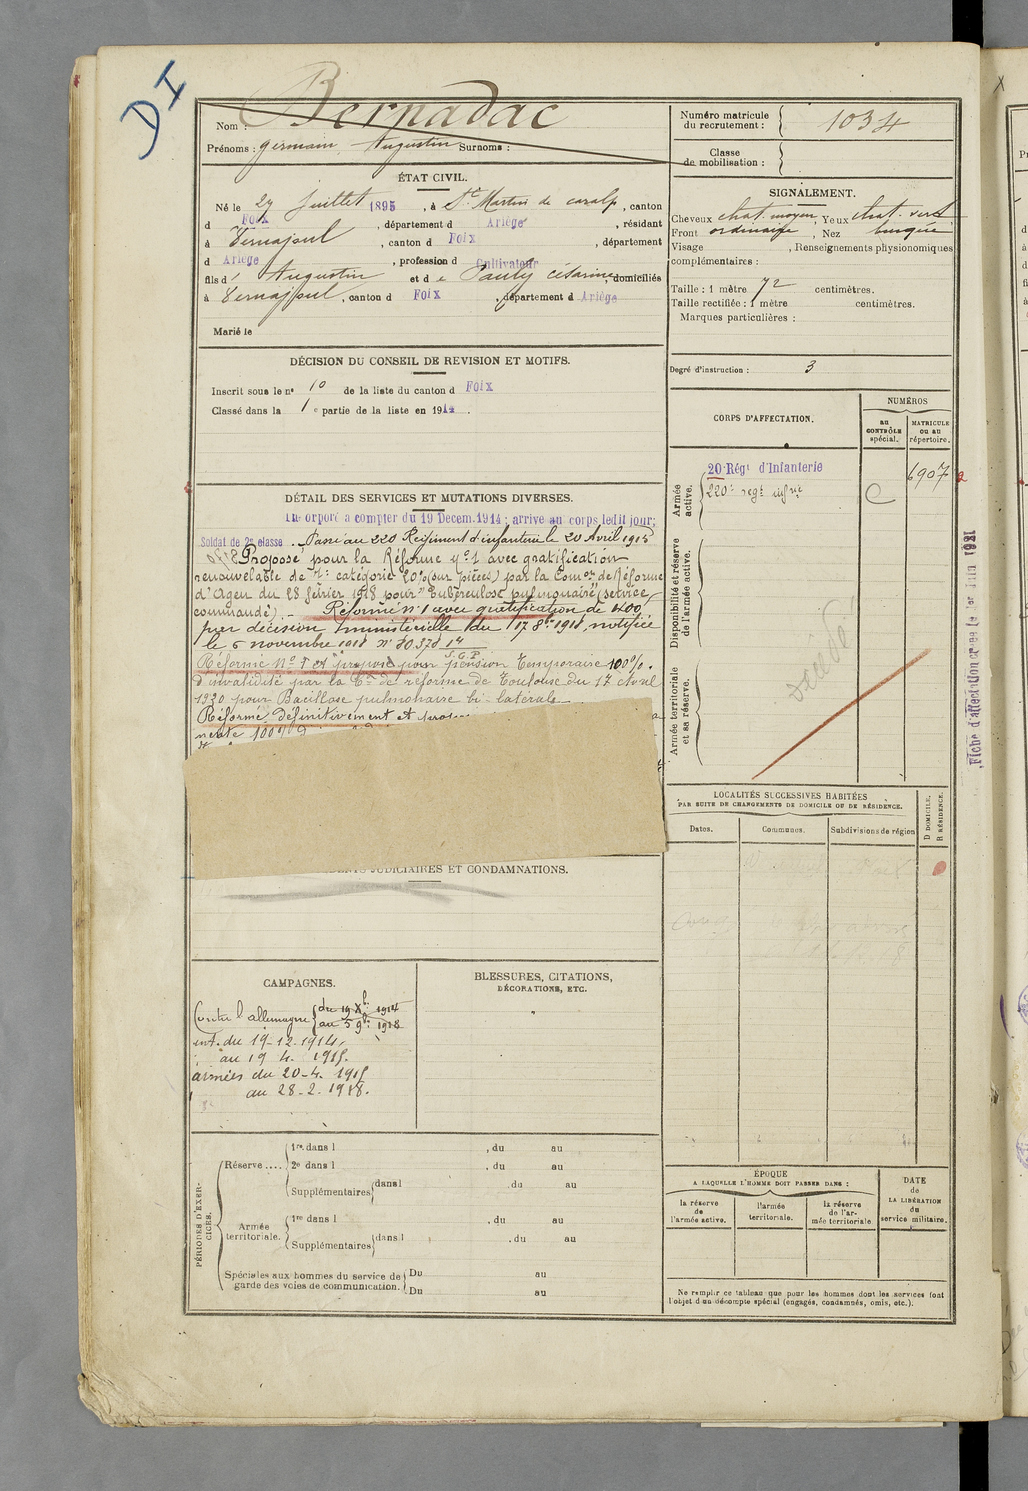 DI
Nom : Bernadac
Prénoms : Germain Augustin Surnoms :
Numéro matricule du recrutement : 1034
Classe de mobilisation :
ÉTAT CIVIL.
Né le 27 Juillet 1895, à St Martin de caralp, canton
d Foix, département d Ariège, résidant
à Vernajoul, canton d Foix, département
d Ariège, profession d Cultivateur
fils d' Augustin et de Pauly Césarine, domiciliés
à Vernajoul, canton d Foix, département d Ariège
Marié le
SIGNALEMENT.
Cheveux chat. moyen, Yeux chat. vert
Front ordinaire, Nez busqué
Visage , Renseignements physionomiques
complémentaires :
Taille : 1 mètre 72 centimètres.
Taille rectifiée : 1 mètre centimètres.
Marques particulières :
Degré d'instruction : 3
DÉCISION DU CONSEIL DE REVISION ET MOTIFS.
Inscrit sous le n° 10 de la liste du canton d Foix
Classé dans la 1 e partie de la liste en 1914.
CORPS D'AFFECTATION.
NUMÉROS
au CONTRÔLE spécial.
MATRICULE ou au répertoire.
Armée active.
20 Régt d'Infanterie
220e regt infrie
6907
Disponibilité et réserve de l'armée active.
Armée territoriale et sa réserve.
décédé
Fiche d'affectation
DÉTAIL DES SERVICES ET MUTATIONS DIVERSES.
Incorporé à compter du 19 Decem. 1914 ; arrivé au corps ledit jour;
Soldat de 2e classe. Passé au 220 Régiment d'infanterie le 20 Avril 1915
Proposé pour la Réforme n° 1 avec gratification
renouvelable de catégorie (sur pièces) par la Comon de Réforme
d'Agen du 28 février 1918 pour "Tuberculose pulmonaire" (service
commandé). - Réformé n° 1 avec gratification de
par décision ministérielle du 17 8bre 1918, notifiée
le 5 novembre 1918 n°
Réformé N° 1 et proposé pour pension temporaire 100%.
d'invalidité par la Con de réforme de Toulouse du 17 Avril
1920 pour Bacillose pulmonaire bi-latérale
Réformé Définitivement et
100%
LOCALITÉS SUCCESSIVES HABITÉES
PAR SUITE DE CHANGEMENTS DE DOMICILE OU DE RÉSIDENCE.
Dates.
Communes.
Subdivisions de région
D DOMICILE.
R RÉSIDENCE.
JUDICIAIRES ET CONDAMNATIONS.
CAMPAGNES.
Contre l'allemagne du 19 Xb 1914
au 5 9b 1918
int. du 19-12-1914
au 19 4. 1915.
armées du 20-4. 1915
au 28-2. 1918.
BLESSURES, CITATIONS,
DÉCORATIONS, ETC.
PÉRIODES D'EXERCICES.
Réserve ....
1re dans l , du au
2e dans l , du au
Supplémentaires dans l , du au
Armée territoriale.
1re dans l , du au
Supplémentaires dans l . du au
Spéciales aux hommes du service de garde des voies de communication.
Du au
Du au
ÉPOQUE
A LAQUELLE L'HOMME DOIT PASSER DANS :
la réserve de l'armée active.
l'armée territoriale.
la réserve de l'armée territoriale
DATE de LA LIBÉRATION du service militaire.
Ne remplir ce tableau que pour les hommes dont les services font
l'objet d'un décompte spécial (engagés, condamnés, omis, etc.).